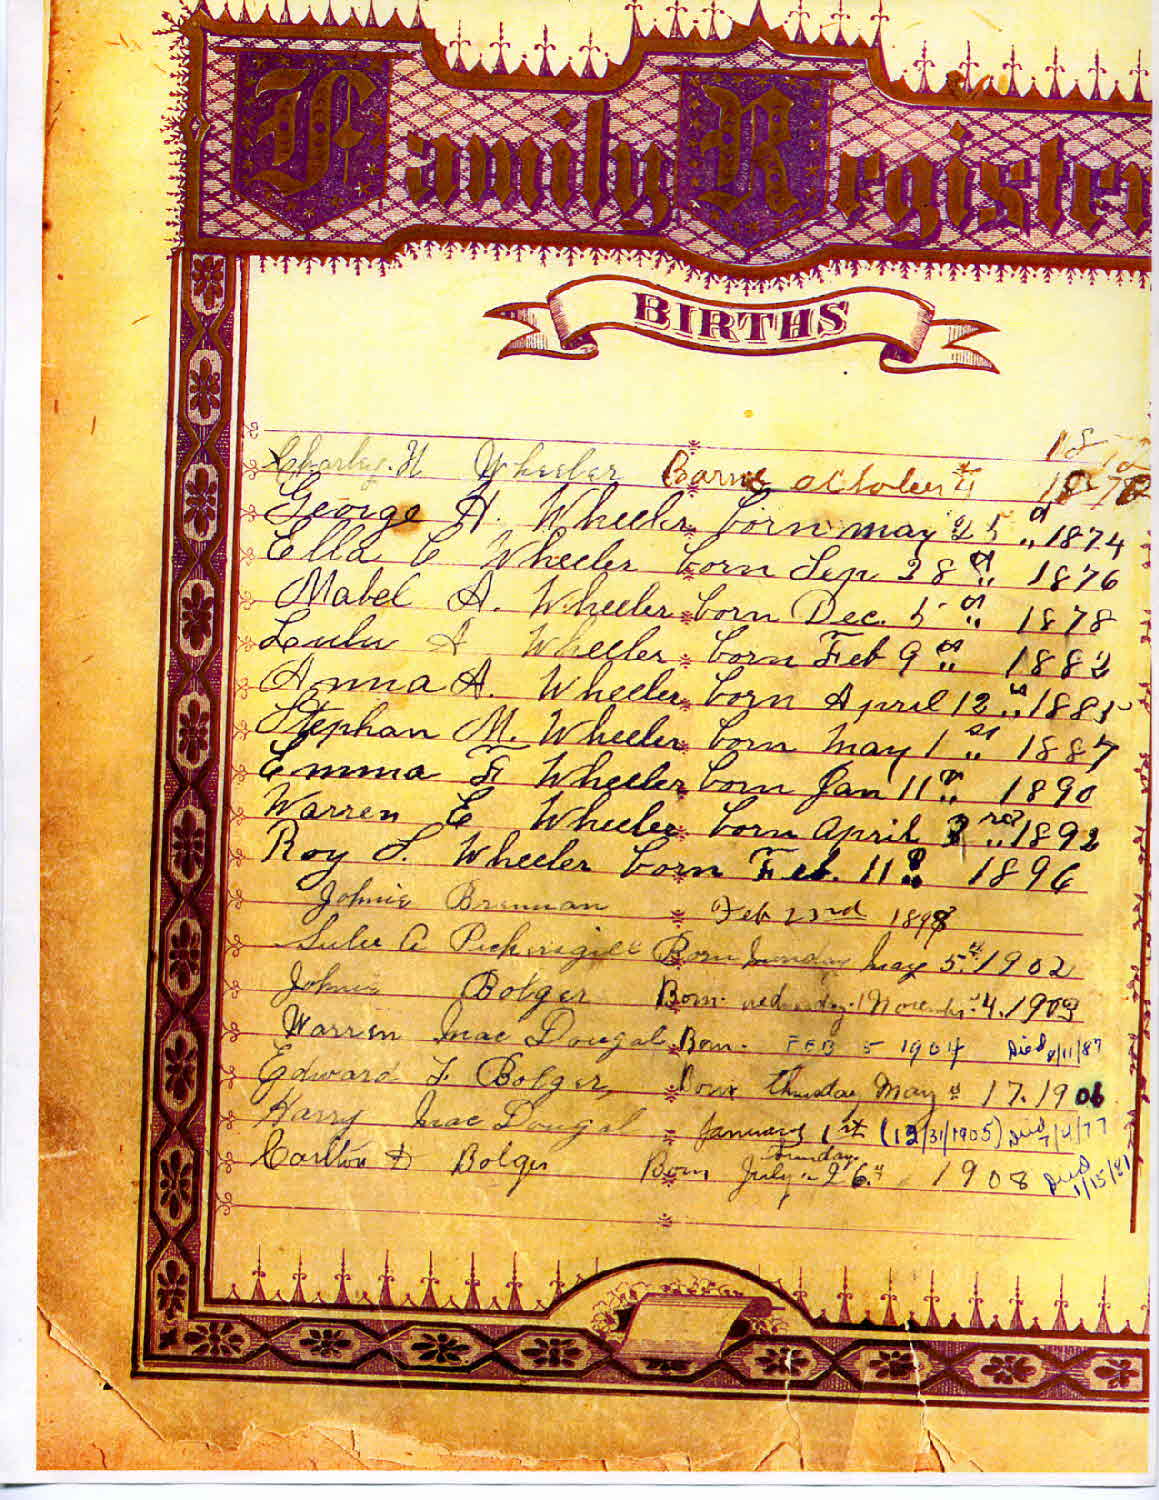 Family Register
BIRTHS
18
Charley. H Wheeler Barne October 4 1872
George H. Wheeler born may 25 th 1874
Ella C Wheeler born Sep 28 th 1876
Mabel A. Wheeler born Dec. 5 th 1878
Lulu A Wheeler born Feb 9 th 1882
Anna A. Wheeler born April 12 th 1885
Stephan M. Wheeler born may 1 st 1887
Emma F Wheeler born Jan 11 th 1890
Warren E Wheeler born april 3 rd 1892
Roy L. Wheeler born Feb. 11 1896
Johnie Brennan Feb 23rd 1898
Lulu A Pickersgill Born Sunday May 5th 1902
Johnie Bolger Born wednesday November 4. 1903
Warren Mac Dougal Born. FEB 5 1904 Died 8/11/87
Edward F. Bolger, Born thursday May 17. 1906
Harry Mac Dougal January 1st (12/31/1905) Died 7/4/77
Sunday
Carlton F Bolger Born July 26th 1908 Died 1/15/81